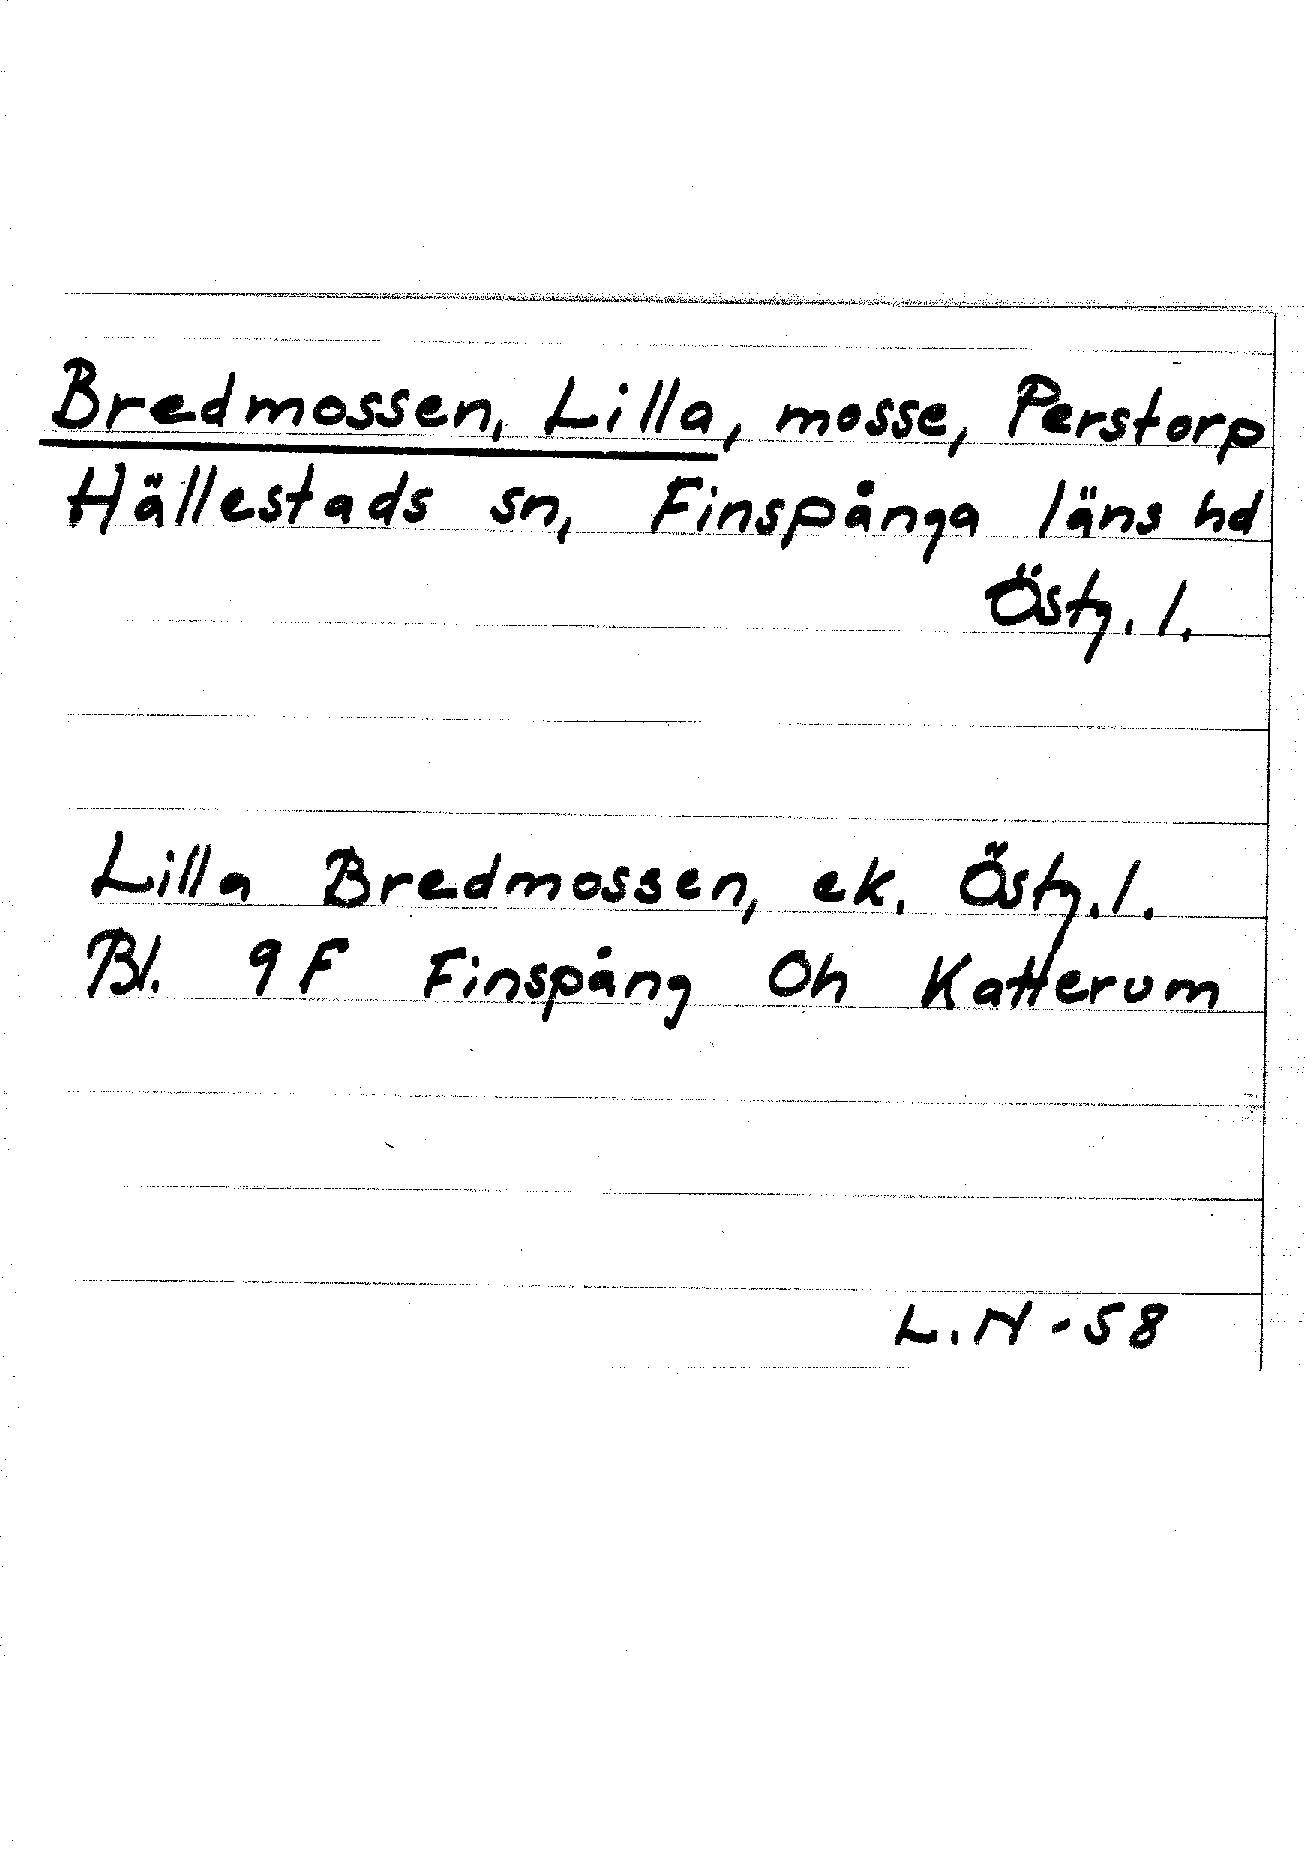 Bredmossen, Lilla, mosse, Perstorp
Hällestads sn, Finspånga läns hd
Östg. l.
Lilla Bredmossen, ek. Östg. l.
Bl. 9 F Finspång Oh Katterum
L. N - 58